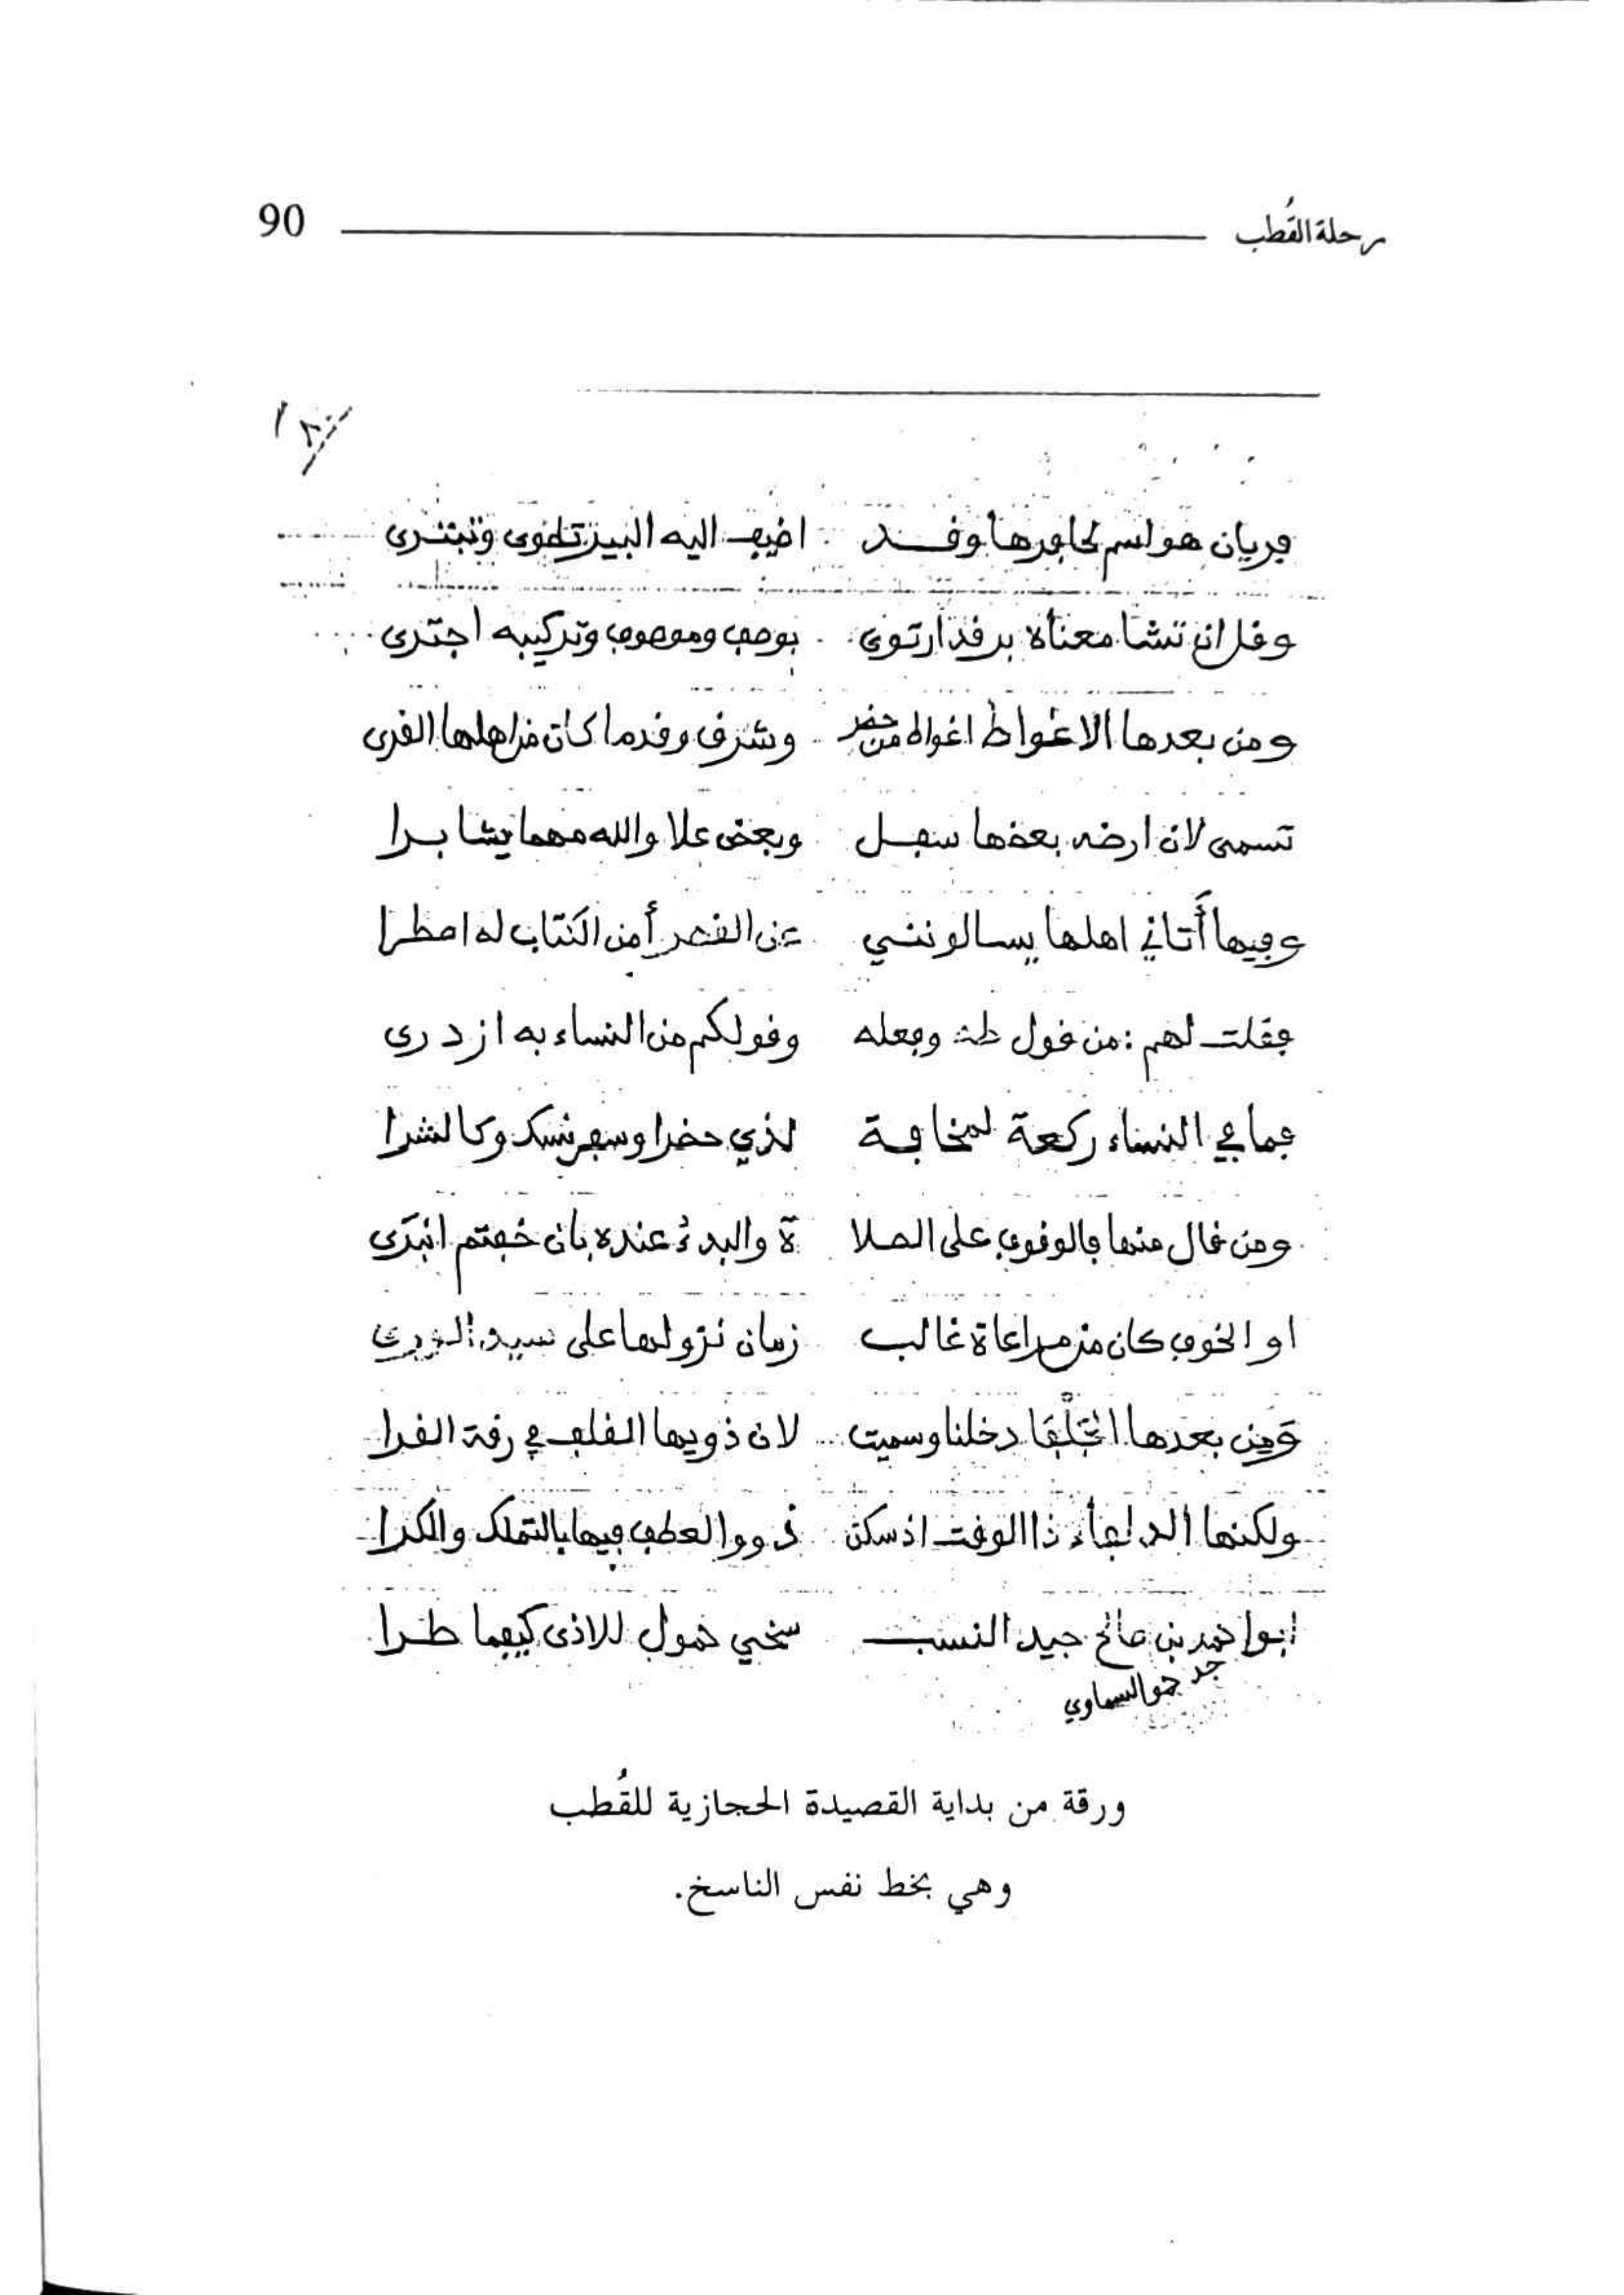 رحلة القُطب 90
فريان هو اسم لحافرها وقد اضيف اليه البير تقوى وتبترى
وقل ان تشا معناه بر قد ارتوى بوصف وموصوف وتركيبه اجترى
ومن بعدها الاغواط اغواط من حضر وشرق وقدما كان من اهلها القرى
تسمى لان ارضه بعضها سفل وبعض علا والله مهما يشا برا
وفيها أتاني اهلها يسالونني عن القصر أمن الكتاب له اصطرا
فقلت لهم: من قول طه وفعله وقولكم من النساء به ازدرى
فما في النساء ركعة لمخافة لذي حضر او سفر نسك وكالشرا
ومن قال منها فالوقوف على الصلا ة والبدء عنده بان خفتم انبرى
او الخوف كان من مراعاة غالب زمان نزولها على سيد الورى
ومن بعدها الجَلْفَا دخلنا وسميت لان ذويها الفلف في رقة القرا
ولكنها الدلفاء ذا الوقت اذ سكن ذووا العطف فيها بالتملك والكرا
ابو احمد بن صالح جيد النسب سخي حمول للاذى كيفما طرا
جد حمو السماوي
ورقة من بداية القصيدة الحجازية للقُطب
وهي بخط نفس الناسخ.